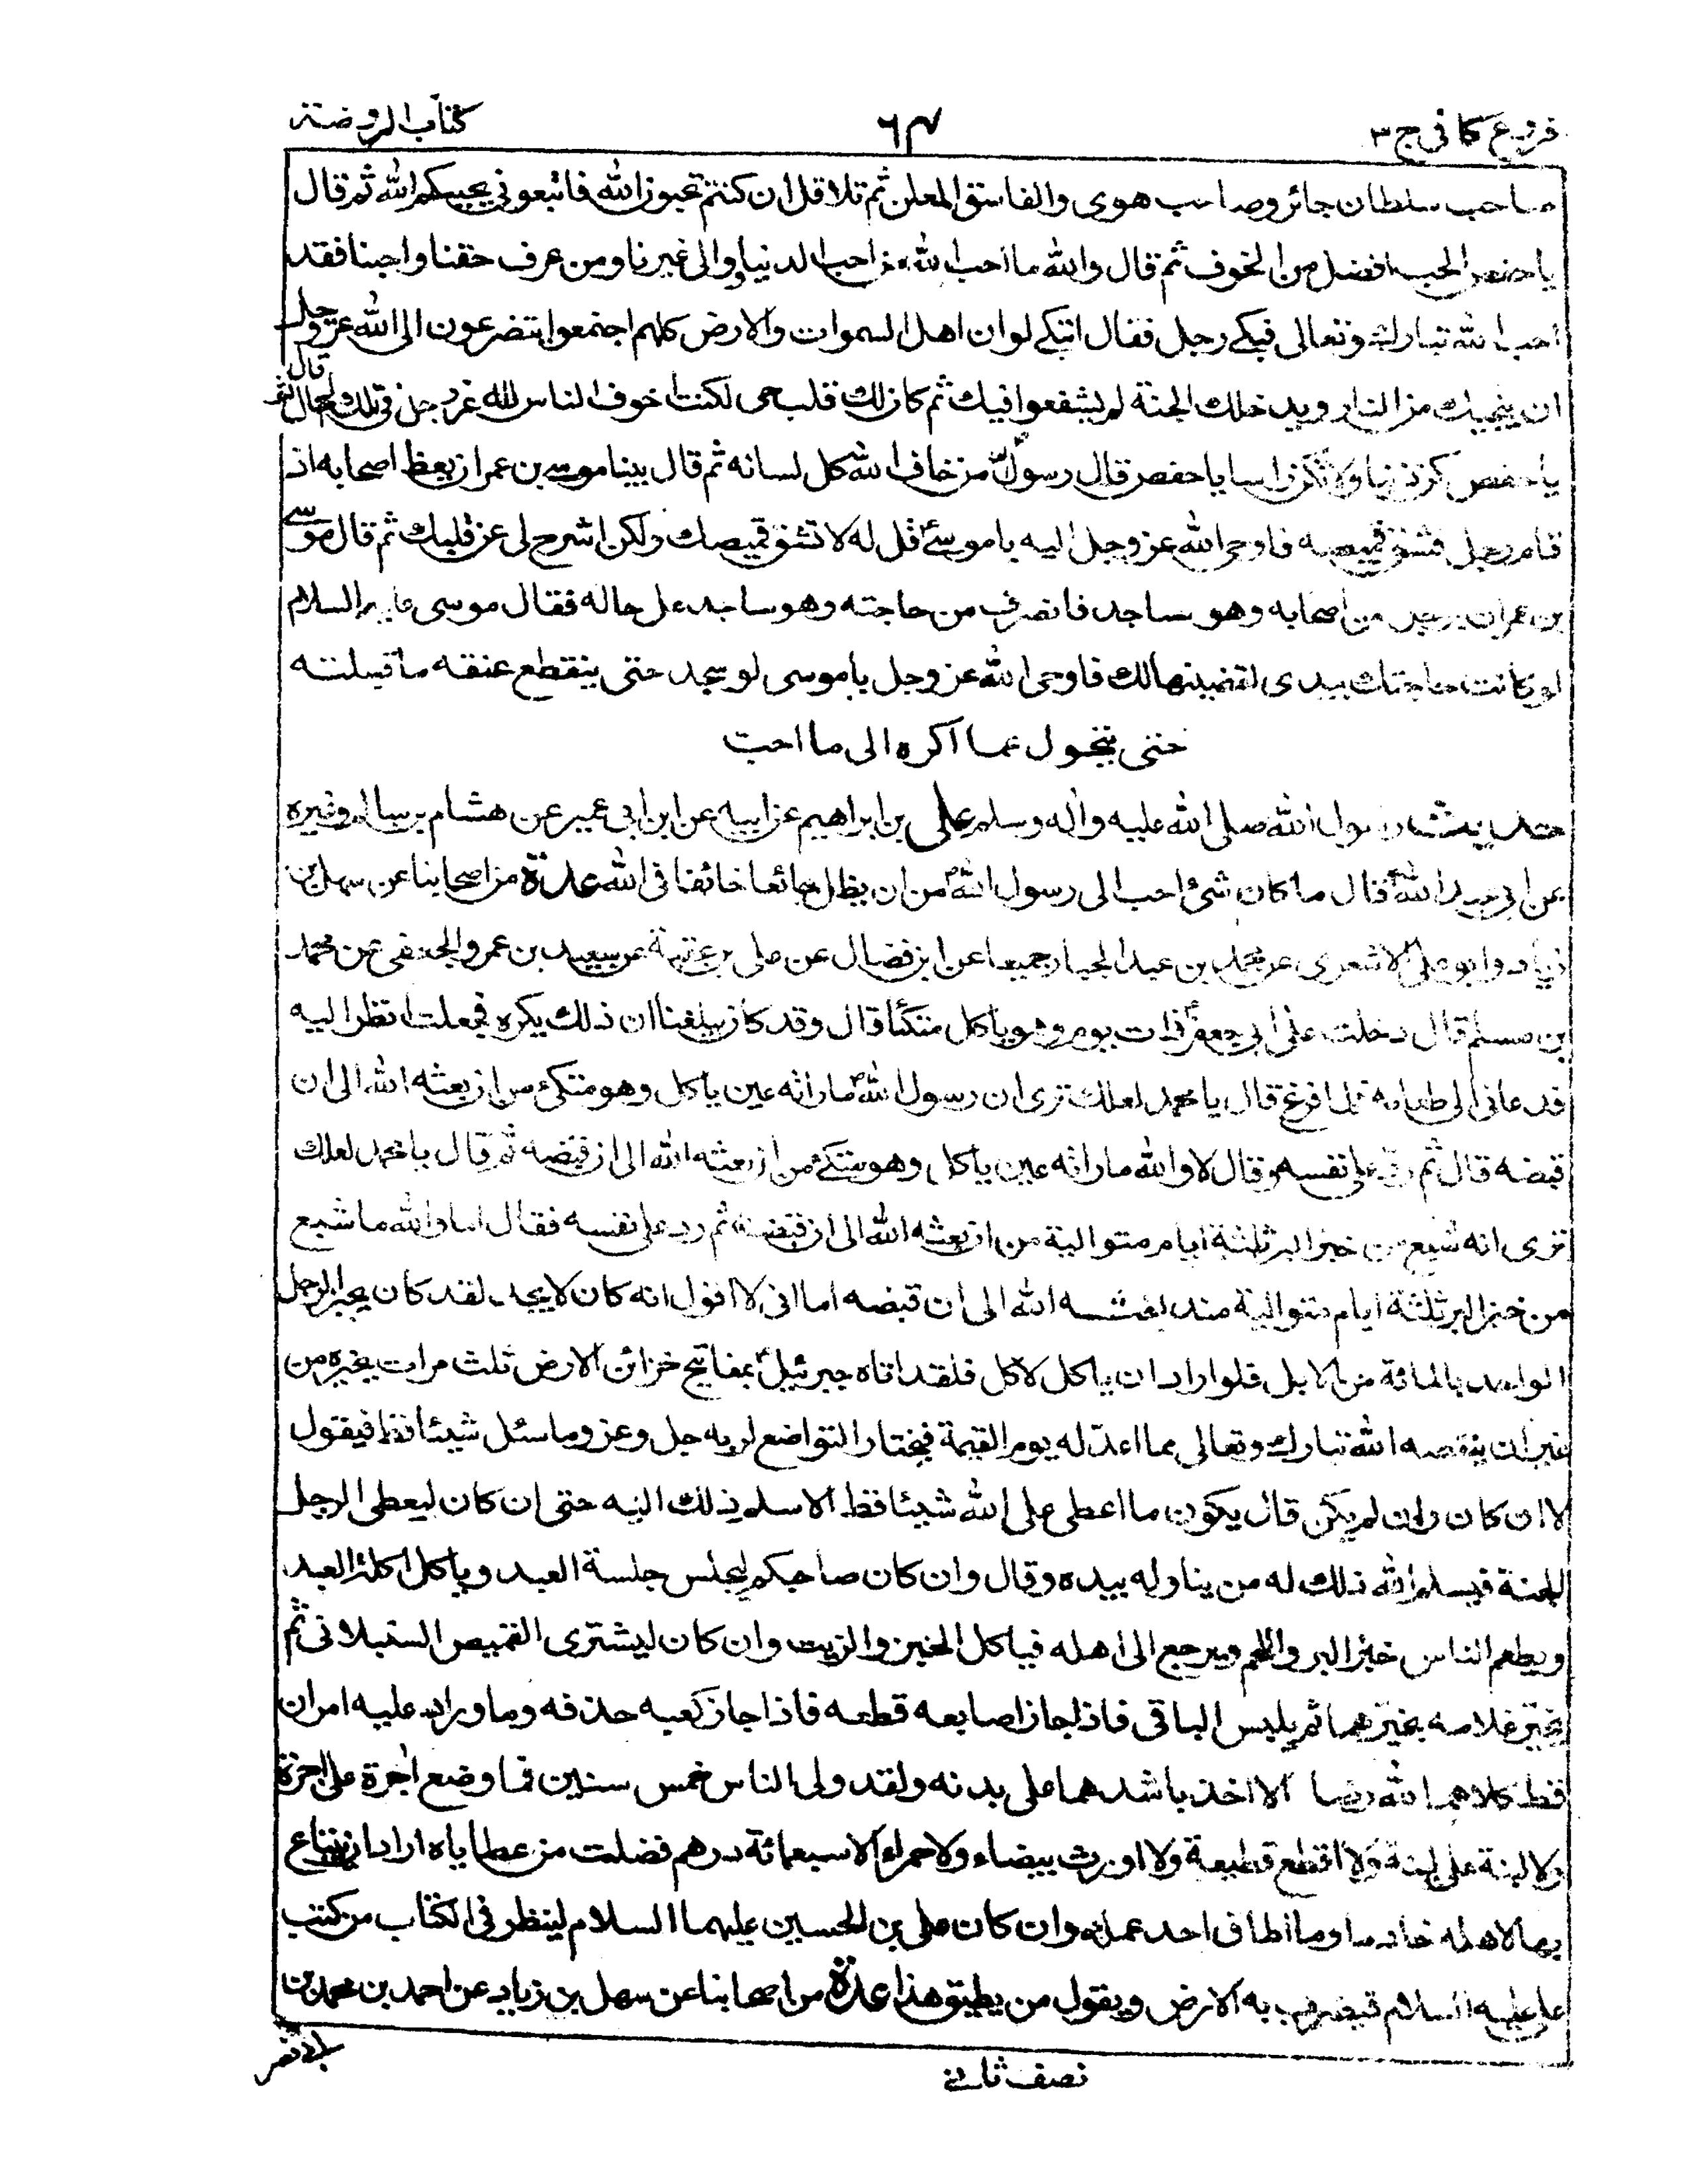 فروع كافى ج ٣
٦٣
كتاب الروضة
صاحب سلطان جائر وصاحب هوى والفاسق المعلن ثم تلا قل ان كنتم تحبون الله فاتبعونى يحببكم الله ثم قال
يا حفص الحب افضل من الخوف ثم قال والله ما احب الله من احب الدنيا ووالى غيرنا ومن عرف حقنا واحبنا فقد
احب الله تبارك وتعالى فبكى رجل فقال اتبكى لو ان اهل السموات والارض كلهم اجتمعوا يتضرعون الى الله عز وجل
ان ينجيك من النار ويدخلك الجنة لم يشفعوا فيك ثم كان لك قلب حى لكنت اخوف الناس لله عز وجل فى تلك الحال ثم قال
يا حفص كن ذنبا ولا تكن راسا يا حفص قال رسول الله ص من خاف الله كل لسانه ثم قال بينا موسى بن عمران يعظ اصحابه اذ
قام رجل فشق قميصه فاوحى الله عز وجل اليه يا موسى قل له لا تشق قميصك ولكن اشرح لى عن قلبك ثم قال موسى
بن عمران برجل من اصحابه وهو ساجد فانصرف من حاجته وهو ساجد على حاله فقال موسى عليه السلام
لو كانت حاجتك بيدى لقضيتها لك فاوحى الله عز وجل يا موسى لو سجد حتى ينقطع عنقه ما قبلته
حتى يتحول عما اكره الى ما احب
حديث رسول الله صلى الله عليه واله وسلم على بن ابراهيم عن ابيه عن ابن ابى عمير عن هشام بن سالم وغيره
عن ابى عبد الله ع قال ما كان شئ احب الى رسول الله ص من ان يظل جائعا خائفا فى الله عدة من اصحابنا عن سهل بن
زياد وابو على الاشعرى عن محمد بن عبد الجبار جميعا عن ابن فضال عن على بن عقبة عن سعيد بن عمرو الجعفى عن محمد
بن مسلم قال دخلت على ابى جعفر ع ذات يوم وهو ياكل متكئا قال وقد كان يبلغنا ان ذلك يكره فجعلت انظر اليه
فدعانى الى طعامه فلما فرغ قال يا محمد لعلك ترى ان رسول الله ص ما راته عين ياكل وهو متكئ من ان بعثه الله الى ان
قبضه قال ثم رد على نفسه فقال لا والله ما راته عين ياكل وهو متكئ من ان بعثه الله الى ان قبضه ثم قال يا محمد لعلك
ترى انه شبع من خبز البر ثلثة ايام متوالية من ان بعثه الله الى ان قبضه ثم رد على نفسه فقال لا والله ما شبع
من خبز البر ثلثة ايام متوالية منذ بعثه الله الى ان قبضه اما انى لا اقول انه كان لا يجد لقد كان يجيز الرجل
الواحد بالمائة من الابل فلو اراد ان ياكل لاكل فلقد اتاه جبرئيل ع بمفاتيح خزائن الارض ثلث مرات يخيره من
غير ان ينقصه الله تبارك وتعالى مما اعد له يوم القيمة فيختار التواضع لربه جل وعز وما سئل شيئا قط فيقول
لا ان كان وان لم يكن قال يكون ما اعطى على الله شيئا قط الا سلم ذلك اليه حتى ان كان ليعطى الرجل
الجنة فيسلم الله ذلك له من يناوله بيده وقال وان كان صاحبكم ليجلس جلسة العبد وياكل اكلة العبد
ويطعم الناس خبز البر واللحم ويرجع الى اهله فياكل الخبز والزيت وان كان ليشترى القميص السنبلانى ثم
يخير غلامه بخيرهما ثم يلبس الباقى فاذا جاز اصابعه قطعه فاذا جاز كعبه حذفه وما ورد عليه امران
قط كلاهما لله رضا الا اخذ باشدهما على بدنه ولقد ولى الناس خمس سنين فما وضع اجرة على اجرة
ولا لبنة على لبنة ولا اقطع قطيعة ولا اورث بيضاء ولا حمراء الا سبعمائة درهم فضلت من عطاياه اراد ان يبتاع
بها لاهله خادما وما اطاق احد عمله وان كان على بن الحسين عليهما السلام لينظر فى الكتاب من كتب
على عليه السلام فيضرب به الارض ويقول من يطيق هذا عدة من اصحابنا عن سهل بن زياد عن احمد بن محمد بن
نصف ثانى